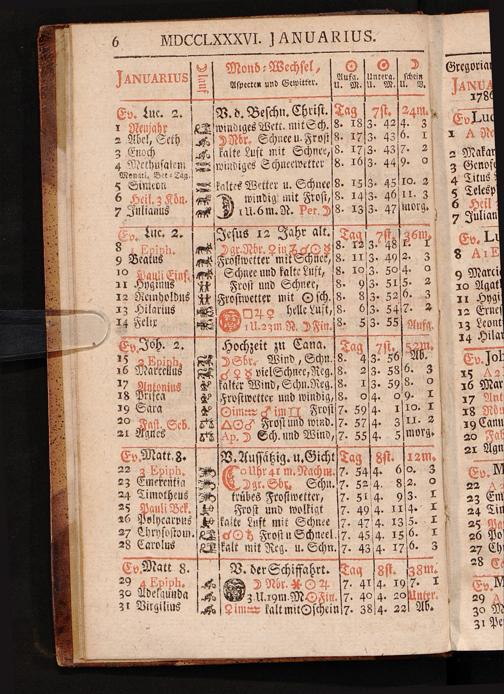 6 MDCCLXXXVI. JANUARIUS.
JANUARIUS
☽ lauf
Mond-Wechsel,
Aspecten und Gewitter.
☉ Aufg. U. M.
☉ Unterg. U. M.
☽ schein U. V.
Ev. Luc. 2. V. d. Beschn. Christ. Tag 7st. 24m.
1 Neujahr windiges Wett. mit Sch. 8. 18 3. 42 4. 3
2 Abel, Seth ☽ Nbr. Schnee u. Frost 8. 17 3. 43 6. 1
3 Enoch kalte Luft mit Schnee, 8. 17 3. 43 7. 2
4 Methusalem windiges Schneewetter 8. 16 3. 44 9. 0
Monatl. Bet-Tag.
5 Simeon kaltes Wetter u. Schnee 8. 15 3. 45 10. 2
6 Heil. 3 Kön. windig mit Frost, 8. 14 3. 46 11. 3
7 Julianus 1 U. 6 m. N. Per. ☽ 8. 13 3. 47 morg.
Ev. Luc. 2. Jesus 12 Jahr alt. Tag 7st. 36m.
8 1 Epiph. ☽ gr. Nbr. 8. 12 3. 48 1. 1
9 Beatus Frostwetter mit Schnee, 8. 11 3. 49 2. 3
10 Pauli Einf. Schnee und kalte Luft, 8. 10 3. 50 4. 0
11 Hyginus Frost und Schnee, 8. 9 3. 51 5. 2
12 Reinholdus Frostwetter mit ☉ sch. 8. 8 3. 52 6. 3
13 Hilarius □ ♃ ♀ helle Luft, 8. 6 3. 54 7. 2
14 Felix 1 U. 23 m R. ☽ Fin. 8. 5 3. 55 Aufg.
Ev. Joh. 2. Hochzeit zu Cana. Tag 7st. 52m.
15 2 Epiph. ☽ Sbr. Wind, Schn. 8. 4 3. 56 Ab.
16 Marcellus viel Schnee, Reg. 8. 2 3. 58 6. 3
17 Antonius kalter Wind, Schn. Reg. 8. 1 3. 59 8. 0
18 Prisca Frostwetter und windig, 8. 0 4. 0 9. 1
19 Sara Frost 7. 59 4. 1 10. 1
20 Fast. Seb. Frost und wind. 7. 57 4. 3 11. 2
21 Agnes Ap. ☽ Sch. und Wind, 7. 55 4. 5 morg.
Ev. Matt. 8. V. Aussätzig. u. Gicht Tag 8st. 12m.
22 3 Epiph. 0 Uhr 41 m. Nachm. 7. 54 4. 6 0. 3
23 Emerentia ☽ gr. Sbr. Schn. 7. 52 4. 8 2. 0
24 Timotheus trübes Frostwetter, 7. 51 4. 9 3. 1
25 Pauli Bek. Frost und wolkigt 7. 49 4. 11 4. 1
26 Polycarpus kalte Luft mit Schnee 7. 47 4. 13 5. 1
27 Chrysostom. Frost u Schneel. 7. 45 4. 15 6. 1
28 Carolus kalt mit Reg. u. Schn. 7. 43 4. 17 6. 3
Ev. Matt 8. V. der Schiffahrt. Tag 8st. 38m.
29 4 Epiph. ☽ Nbr. ⚹ ☉ ♃ 7. 41 4. 19 7. 1
30 Adelgunda 3 U. 19 m. M ☉ Fin. 7. 40 4. 20 Unter.
31 Virgilius kalt mit ☉ schein 7. 38 4. 22 Ab.
Gregorian
JANUA
1786